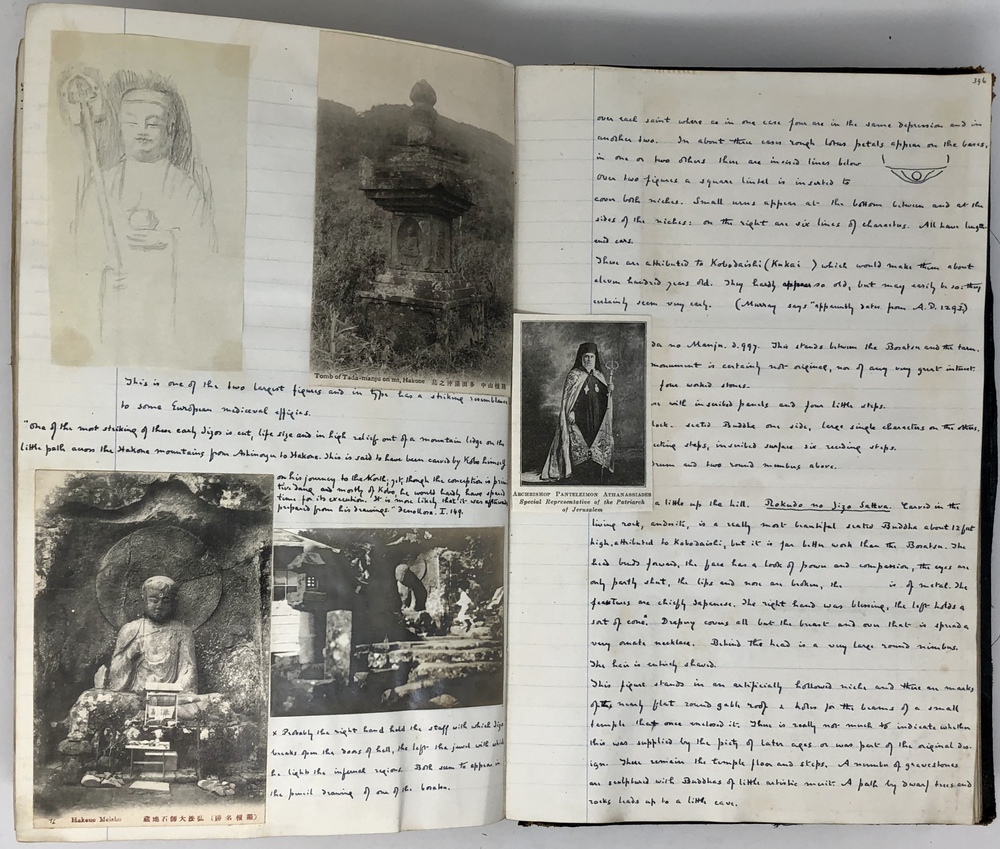 Tomb of Tada-manju on mt, Hakone 箱根山中 多田満仲之墓
This is one of the two largest figures and in type has a striking resemblance
to some European mediaeval effigies.
"One of the most striking of these early Jizos is cut, life size and in high relief out of a mountain ledge on the
little path across the Hakone mountains from Ashinoyu to Hakone. This is said to have been carved by Kobo himself
on his journey to the North, yet, though the conception is prim-
and mostly of Kobo, he would hardly have spared
time for its execution. It is more likely that it was afterward
prepared from his drawings." Fenollosa. I. 149.
Hakone Meisho 弘法大師石地蔵 (箱根名勝)
x Probably the right hand held the staff with which Jizo
breaks open the doors of hell, the left the jewel with which
he lights the infernal regions. Both seem to appear in
the pencil drawing of one of the bosatsu.
396
over each saint where as in one case four are in the same depression and in
another two. In about three cases rough lotus petals appear on the bases,
in one or two others there are incised lines below
Over two figures a square lintel is inserted to
cover both niches. Small urns appear at the bottom between and at the
sides of the niches: on the right are six lines of characters. All have length
end ears.
These are attributed to Kobodaishi (Kukai ) which would make them about
eleven hundred years old. They hardly appear so old, but may easily be so: they
certainly seem very early. (Murray says "apparently dates from A.D. 1293)
da no Manju. d. 997. This stands between the Bosatsu and the tarn.
monument is certainly not original, nor of any very great interest.
four worked stones.
with inscribed panels and four little steps.
seated Buddha one side, large single characters on the others.
steps, inscribed surface six receding steps.
and two round nimbus above.
ARCHBISHOP PANTELEIMON ATHANASSIADES
Special Representative of the Patriarch
of Jerusalem
a little up the hill. Rokudo no Jizo Sattva. Carved in the
living rock, andesite, is a really most beautiful seated Buddha about 12 feet
high, attributed to Kobodaishi, but it is far better work than the Bosatsu. The
head bends foward, the face has a look of power and compassion, the eyes are
only partly shut, the lips and nose are broken, the is of metal. The
features are chiefly Japanese. The right hand was blessing, the left holds a
sort of cone. Drapery covers all but the breast and over that is spread a
very ornate necklace. Behind the head is a very large round nimbus.
The hair is entirely shaved.
This figure stands in an artificially hollowed niche and there are marks
of the nearly flat round gable roof & holes for the beams of a small
temple that once enclosed it. There is really not much to indicate whether
this was supplied by the piety of later ages or was part of the original de-
sign. There remain the temple floor and steps. A number of gravestones
are sculptured with Buddhas of little artistic merit. A path by dwarf trees and
rocks leads up to a little cave.